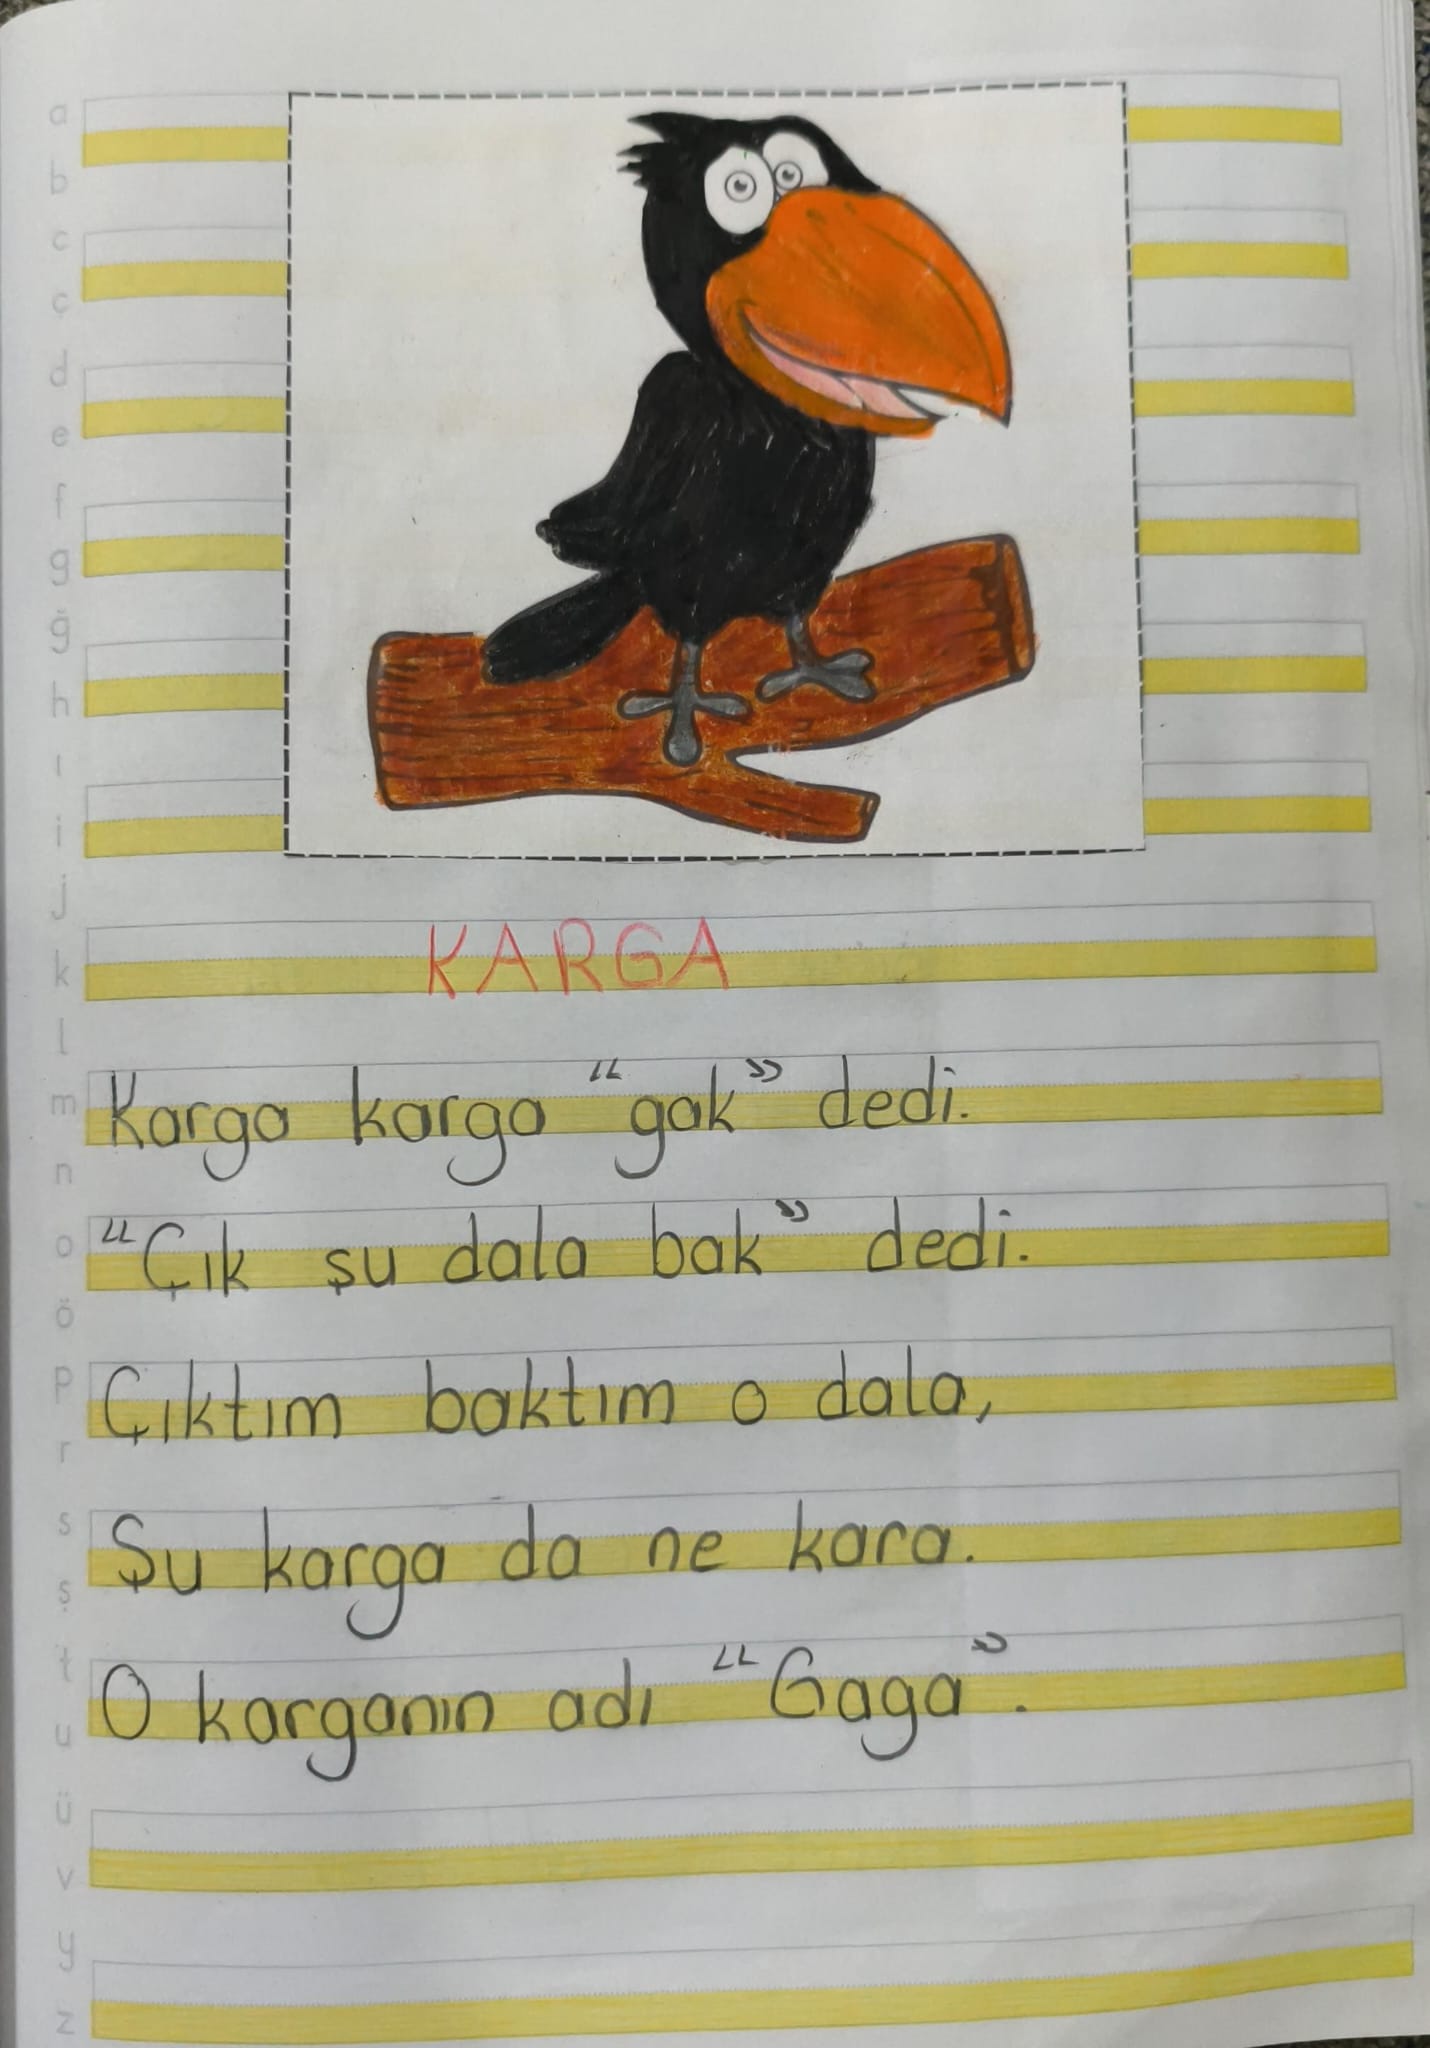 a
b
c
ç
d
e
f
g
ğ
h
ı
i
j
k
KARGA
l
m
Karga karga “gak” dedi.
n
o
“Çık şu dala bak” dedi.
ö
p
Çıktım baktım o dala,
r
s
Şu karga da ne kara.
ş
t
O karganın adı “Gaga”.
u
ü
v
y
z